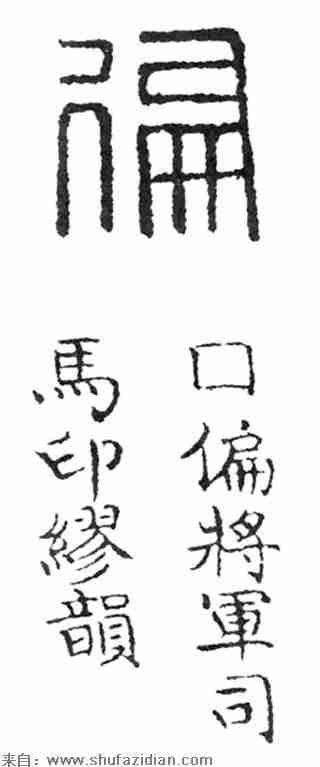 偏
□偏將軍司
馬印繆韻
来自：www.shufazidian.com